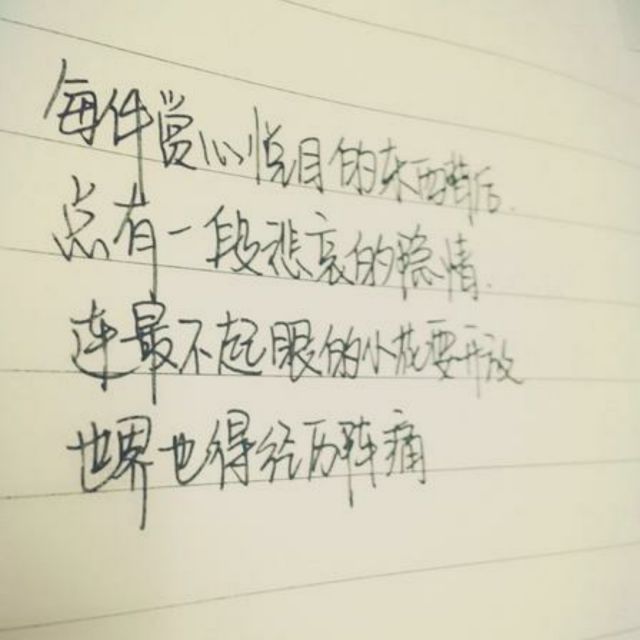 每件赏心悦目的东西背后.
总有一段悲哀的隐情.
连最不起眼的小花要开放
世界也得经历阵痛